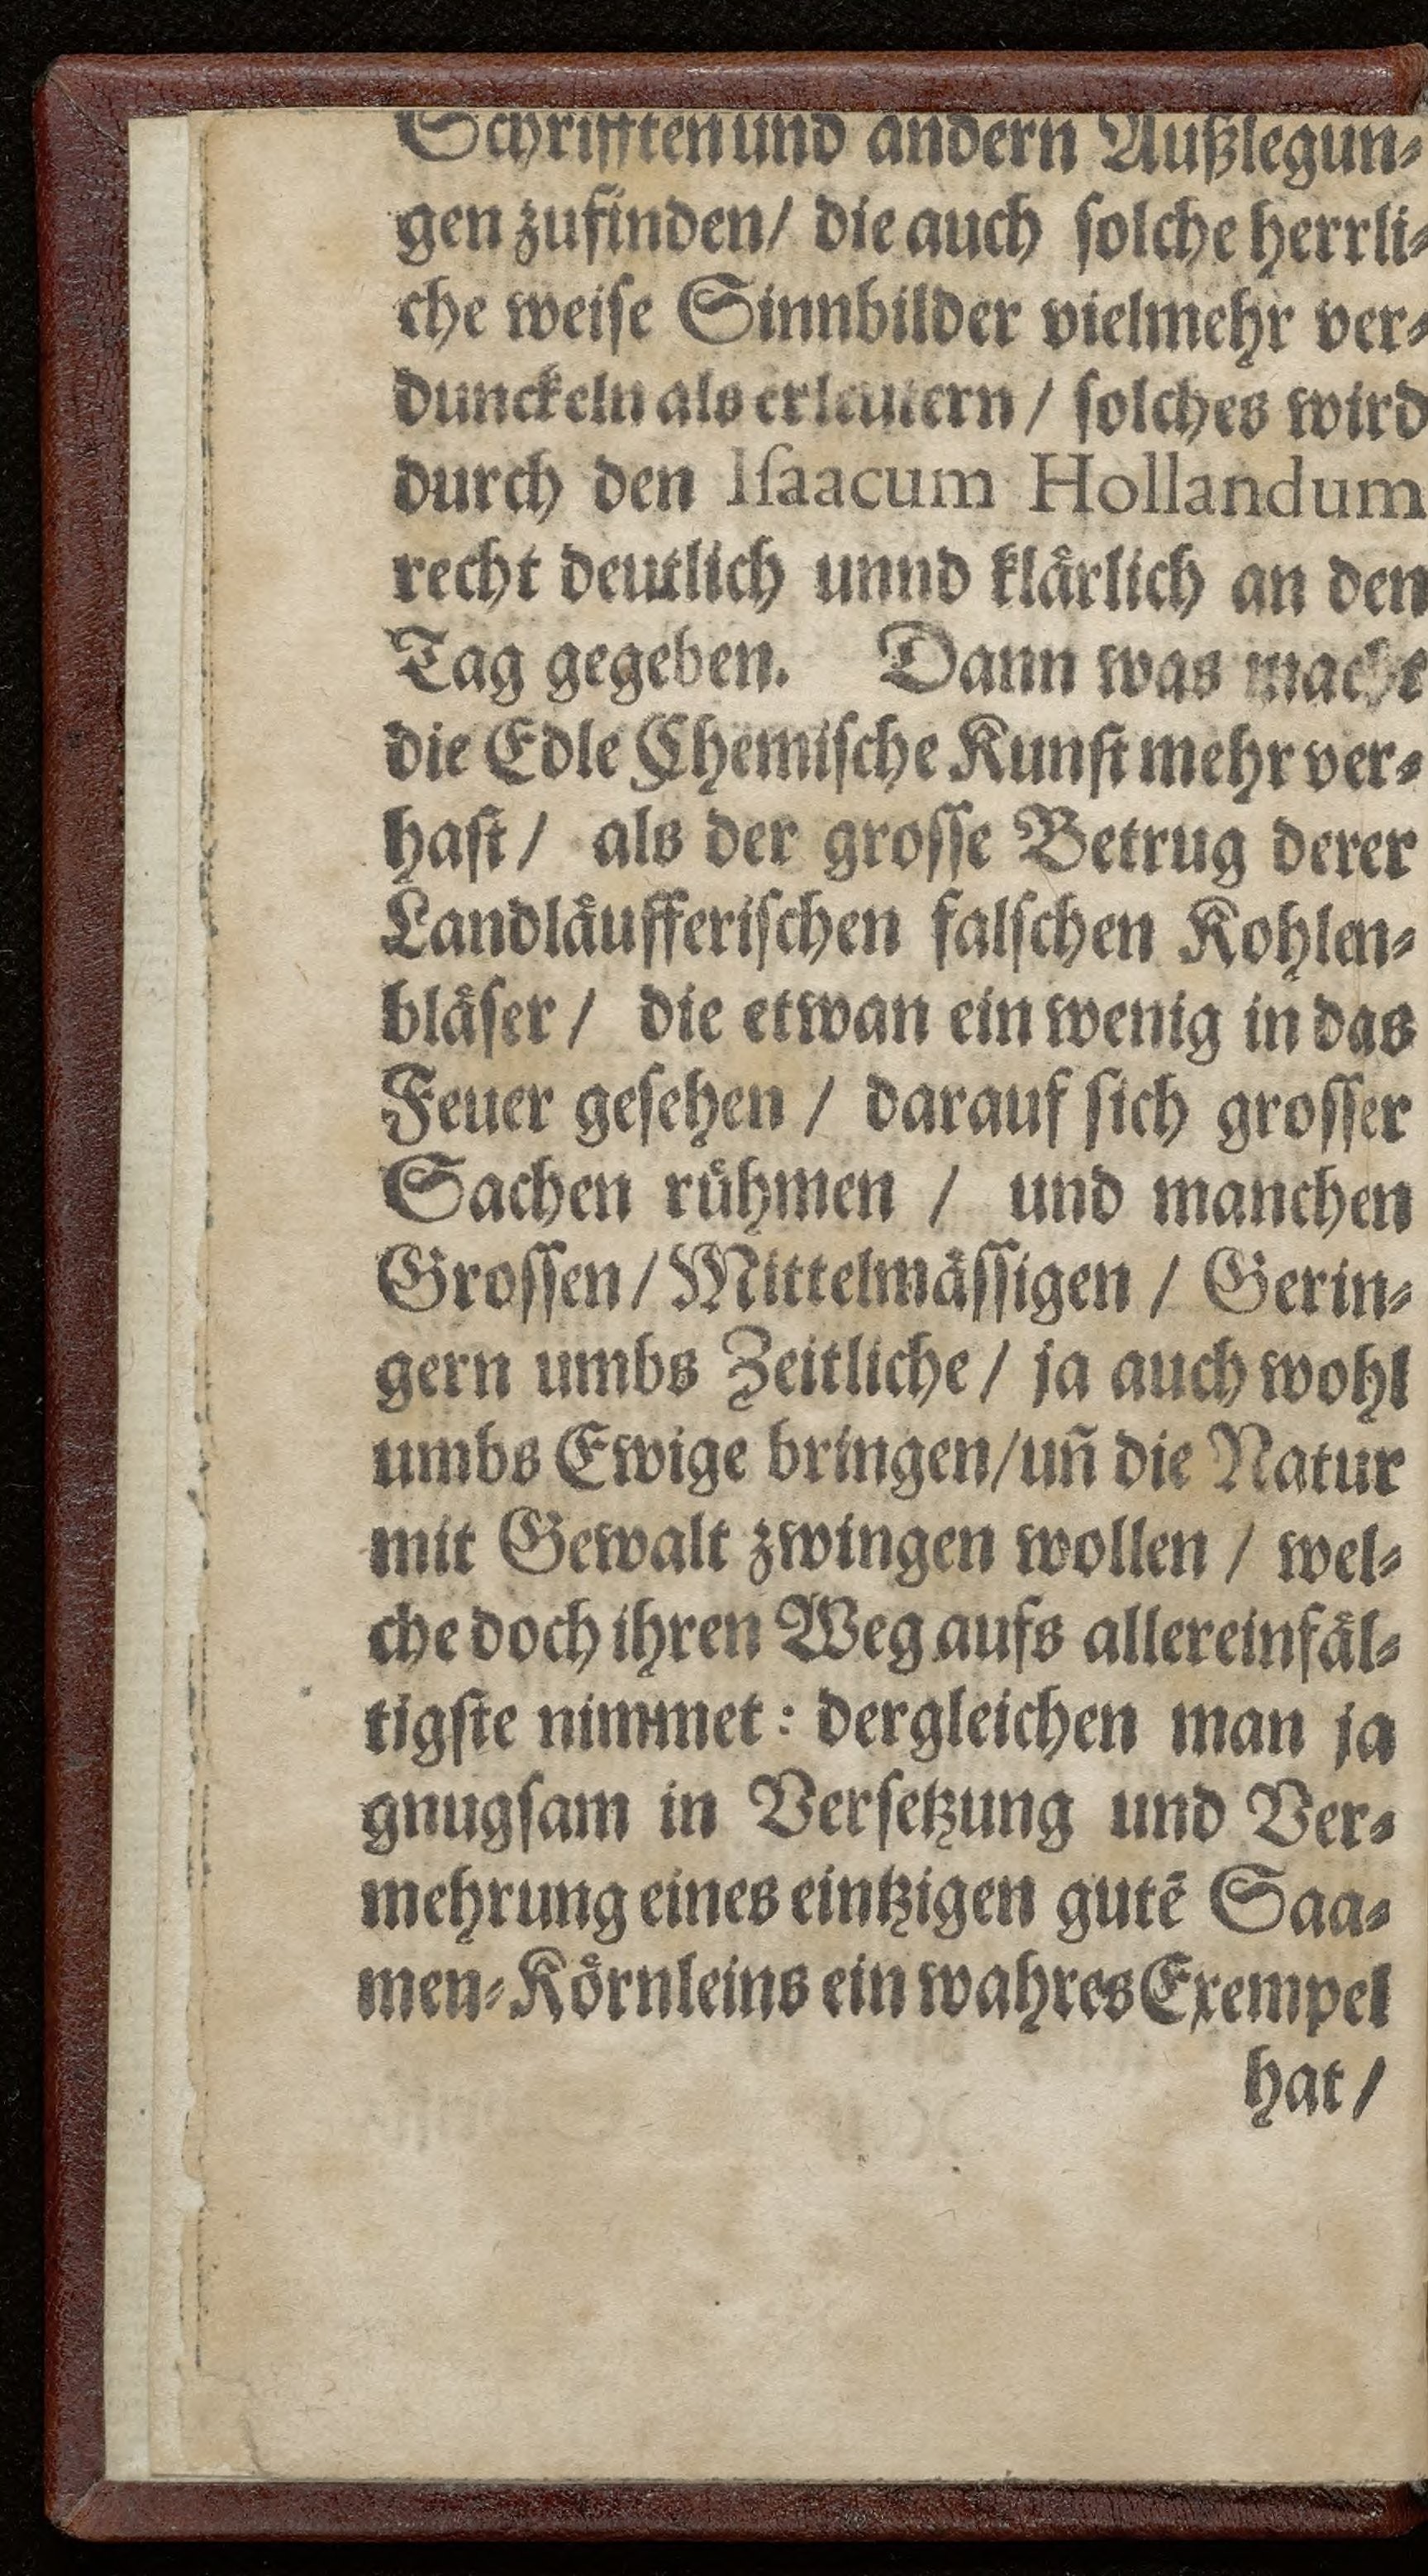 Schrifften und andern Außlegun⸗
gen zufinden/ die auch ſolche herrli⸗
che weiſe Sinnbilder vielmehr ver⸗
dunckeln als erleutern / ſolches wird
durch den Iſaacum Hollandum
recht deutlich unnd klaͤrlich an den
Tag gegeben. Dann was macht
die Edle Chemiſche Kunſt mehr ver⸗
haſt / als der groſſe Betrug derer
Landlaͤufferiſchen falſchen Kohlen⸗
blaͤſer / die etwan ein wenig in das
Feuer geſehen / darauf ſich groſſer
Sachen ruͤhmen / und manchen
Groſſen / Mittelmaͤſſigen / Gerin⸗
gern umbs Zeitliche / ja auch wohl
umbs Ewige bringen/ un̄ die Natur
mit Gewalt zwingen wollen / wel⸗
che doch ihren Weg aufs allereinfaͤl⸗
tigſte nimmet : dergleichen man ja
gnugſam in Verſetzung und Ver⸗
mehrung eines eintzigen gutē Saa⸗
men⸗Koͤrnleins ein wahres Exempel
hat /